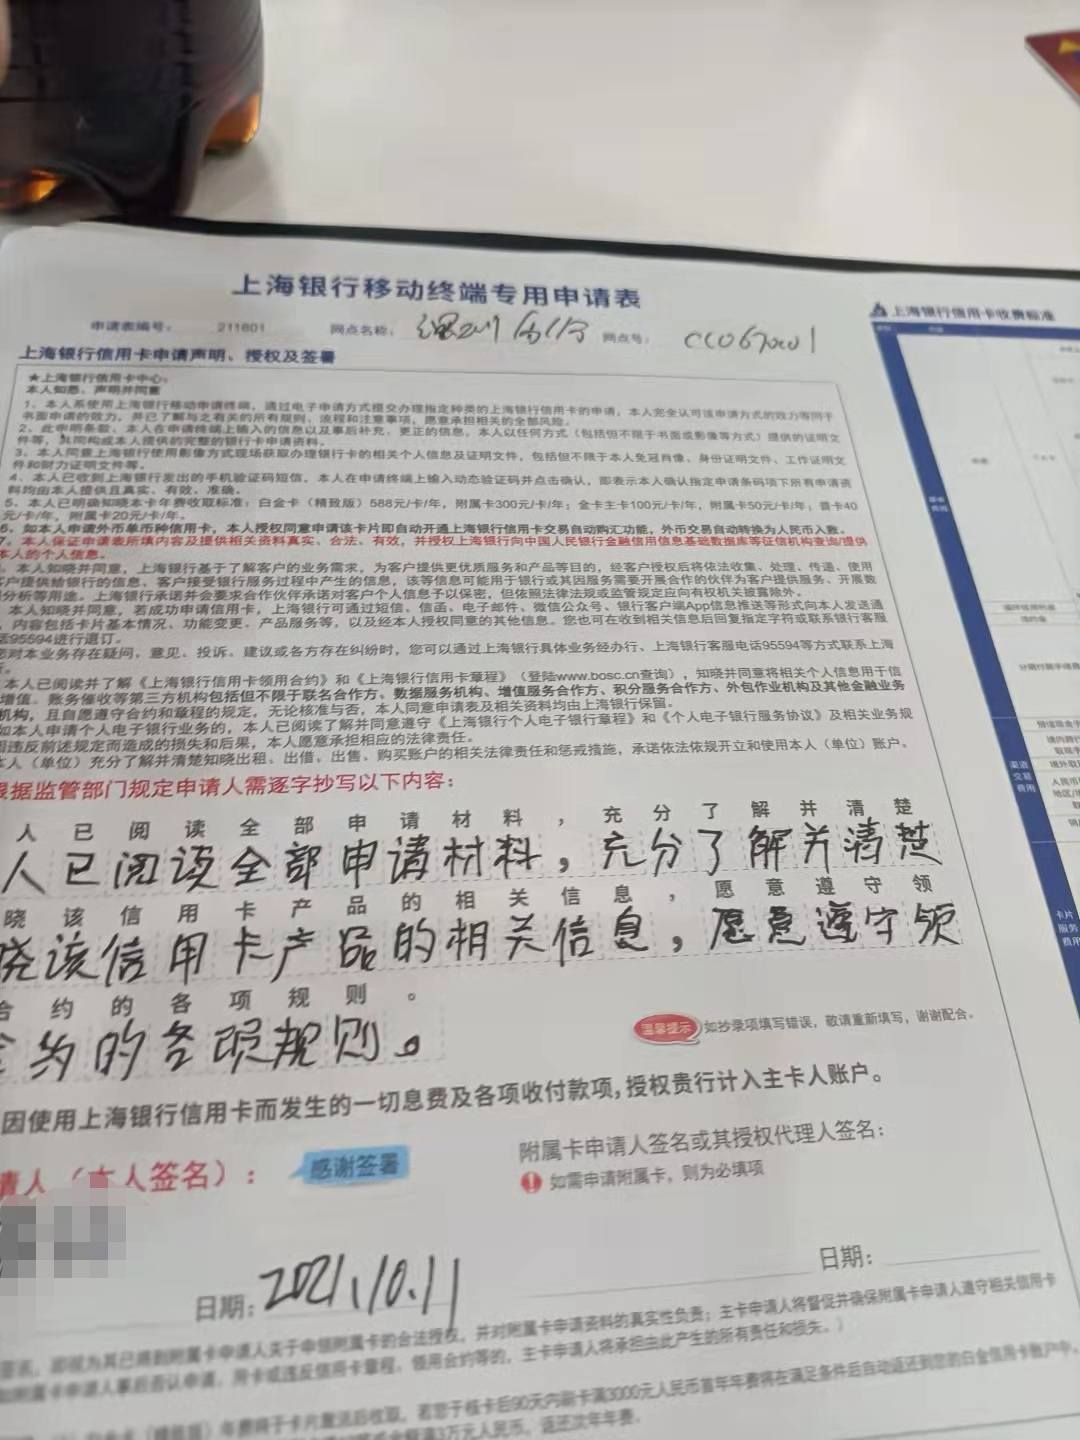 上海银行移动终端专用申请表
申请表编号: 211601 网点名称: 深圳 网点号: CC067001
上海银行信用卡收费标准
上海银行信用卡申请声明、授权及签署
★上海银行信用卡中心:
本人知悉、声明并同意
1、本人系使用上海银行移动申请终端,通过电子申请方式提交办理指定种类的上海银行信用卡的申请,本人完全认可该申请方式的效力等同于
书面申请的效力,并已了解与之有关的所有规则、流程和注意事项,愿意承担相关的全部风险。
2、此申明条款、本人在申请终端上输入的信息以及事后补充、更正的信息,本人以任何方式(包括但不限于书面或影像等方式)提供的证明文
件等,共同构成本人提供的完整的银行卡申请资料。
3、本人同意上海银行使用影像方式现场获取办理银行卡的相关个人信息及证明文件,包括但不限于本人免冠肖像、身份证明文件、工作证明文
件和财力证明文件等。
4、本人已收到上海银行发出的手机验证码短信,本人在申请终端上输入动态验证码并点击确认,即表示本人确认指定申请条码项下所有申请资
料均由本人提供且真实、有效、准确。
5、本人已明确知晓本卡年费收取标准:白金卡(精致版)588元/卡/年,附属卡300元/卡/年;金卡主卡100元/卡/年,附属卡50元/卡/年;普卡40
元/卡/年,附属卡20元/卡/年。
6、如本人申请外币单币种信用卡,本人授权同意申请该卡片即自动开通上海银行信用卡交易自动购汇功能,外币交易自动转换为人民币入账。
7、本人保证申请表所填内容及提供相关资料真实、合法、有效,并授权上海银行向中国人民银行金融信用信息基础数据库等征信机构查询/提供
本人的个人信息。
、本人知晓并同意,上海银行基于了解客户的业务需求,为客户提供更优质服务和产品等目的,经客户授权后将依法收集、处理、传递、使用
客户提供给银行的信息、客户接受银行服务过程中产生的信息,该等信息可能用于银行或其因服务需要开展合作的伙伴为客户提供服务、开展数
分析等用途。上海银行承诺并会要求合作伙伴承诺对客户个人信息予以保密,但依照法律法规或监管规定应向有权机关披露除外。
本人知晓并同意,若成功申请信用卡,上海银行可通过短信、信函、电子邮件、微信公众号、银行客户端App信息推送等形式向本人发送通
,内容包括卡片基本情况、功能变更、产品服务等,以及经本人授权同意的其他信息。您也可在收到相关信息后回复指定字符或联系银行客服
话95594进行退订。
您对本业务存在疑问、意见、投诉、建议或各方存在纠纷时,您可以通过上海银行具体业务经办行、上海银行客服电话95594等方式联系上海
本人已阅读并了解《上海银行信用卡领用合约》和《上海银行信用卡章程》(登陆www.bosc.cn查询),知晓并同意将相关个人信息用于信
增值、账务催收等第三方机构包括但不限于联名合作方、数据服务机构、增值服务合作方、积分服务合作方、外包作业机构及其他金融业务
机构,且自愿遵守合约和章程的规定,无论核准与否,本人同意申请表及相关资料均由上海银行保留。
如本人申请个人电子银行业务的,本人已阅读了解并同意遵守《上海银行个人电子银行章程》和《个人电子银行服务协议》及相关业务规
因违反前述规定而造成的损失和后果,本人愿意承担相应的法律责任。
本人(单位)充分了解并清楚知晓出租、出借、出售、购买账户的相关法律责任和惩戒措施,承诺依法依规开立和使用本人(单位)账户。
根据监管部门规定申请人需逐字抄写以下内容:
人已阅读全部申请材料,充分了解并清楚
人已阅读全部申请材料,充分了解并清楚
晓该信用卡产品的相关信息,愿意遵守领
晓该信用卡产品的相关信息,愿意遵守领
合约的各项规则。
合约的各项规则。
温馨提示 如抄录项填写错误,敬请重新填写,谢谢配合。
因使用上海银行信用卡而发生的一切息费及各项收付款项,授权贵行计入主卡人账户。
请人(本人签名): 感谢签署
附属卡申请人签名或其授权代理人签名:
! 如需申请附属卡,则为必填项
日期: 2021.10.11
日期:
签名,即视为其已得到附属卡申请人关于申领附属卡的合法授权,并对附属卡申请资料的真实性负责;主卡申请人将督促并确保附属卡申请人遵守相关信用卡
如附属卡申请人事后否认申请、用卡或违反信用卡章程、领用合约等的,主卡申请人将承担由此产生的所有责任和损失。)
年费将于卡片激活后收取,若您于核卡后90天内刷卡满3000元人民币首年年费将在满足条件后自动返还到您的白金信用卡账户中。
满3万元人民币,返还次年年费。
基本费用
渠道交易费用
卡片服务费用